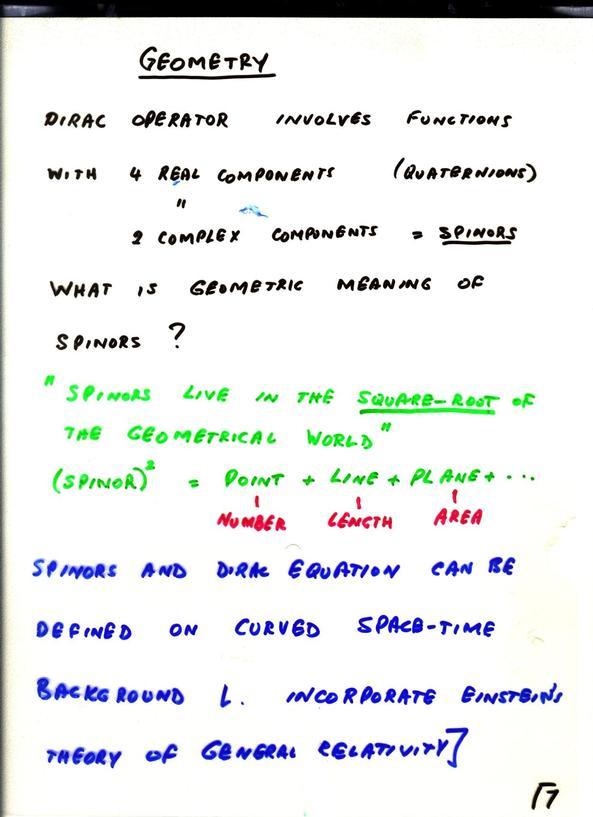 GEOMETRY
DIRAC OPERATOR INVOLVES FUNCTIONS
WITH 4 REAL COMPONENTS (QUATERNIONS)
"
2 COMPLEX COMPONENTS = SPINORS
WHAT IS GEOMETRIC MEANING OF
SPINORS ?
"SPINORS LIVE IN THE SQUARE-ROOT OF
THE GEOMETRICAL WORLD"
(SPINOR)² = POINT + LINE + PLANE + ...
NUMBER LENGTH AREA
SPINORS AND DIRAC EQUATION CAN BE
DEFINED ON CURVED SPACE-TIME
BACKGROUND [. INCORPORATE EINSTEIN'S
THEORY OF GENERAL RELATIVITY]